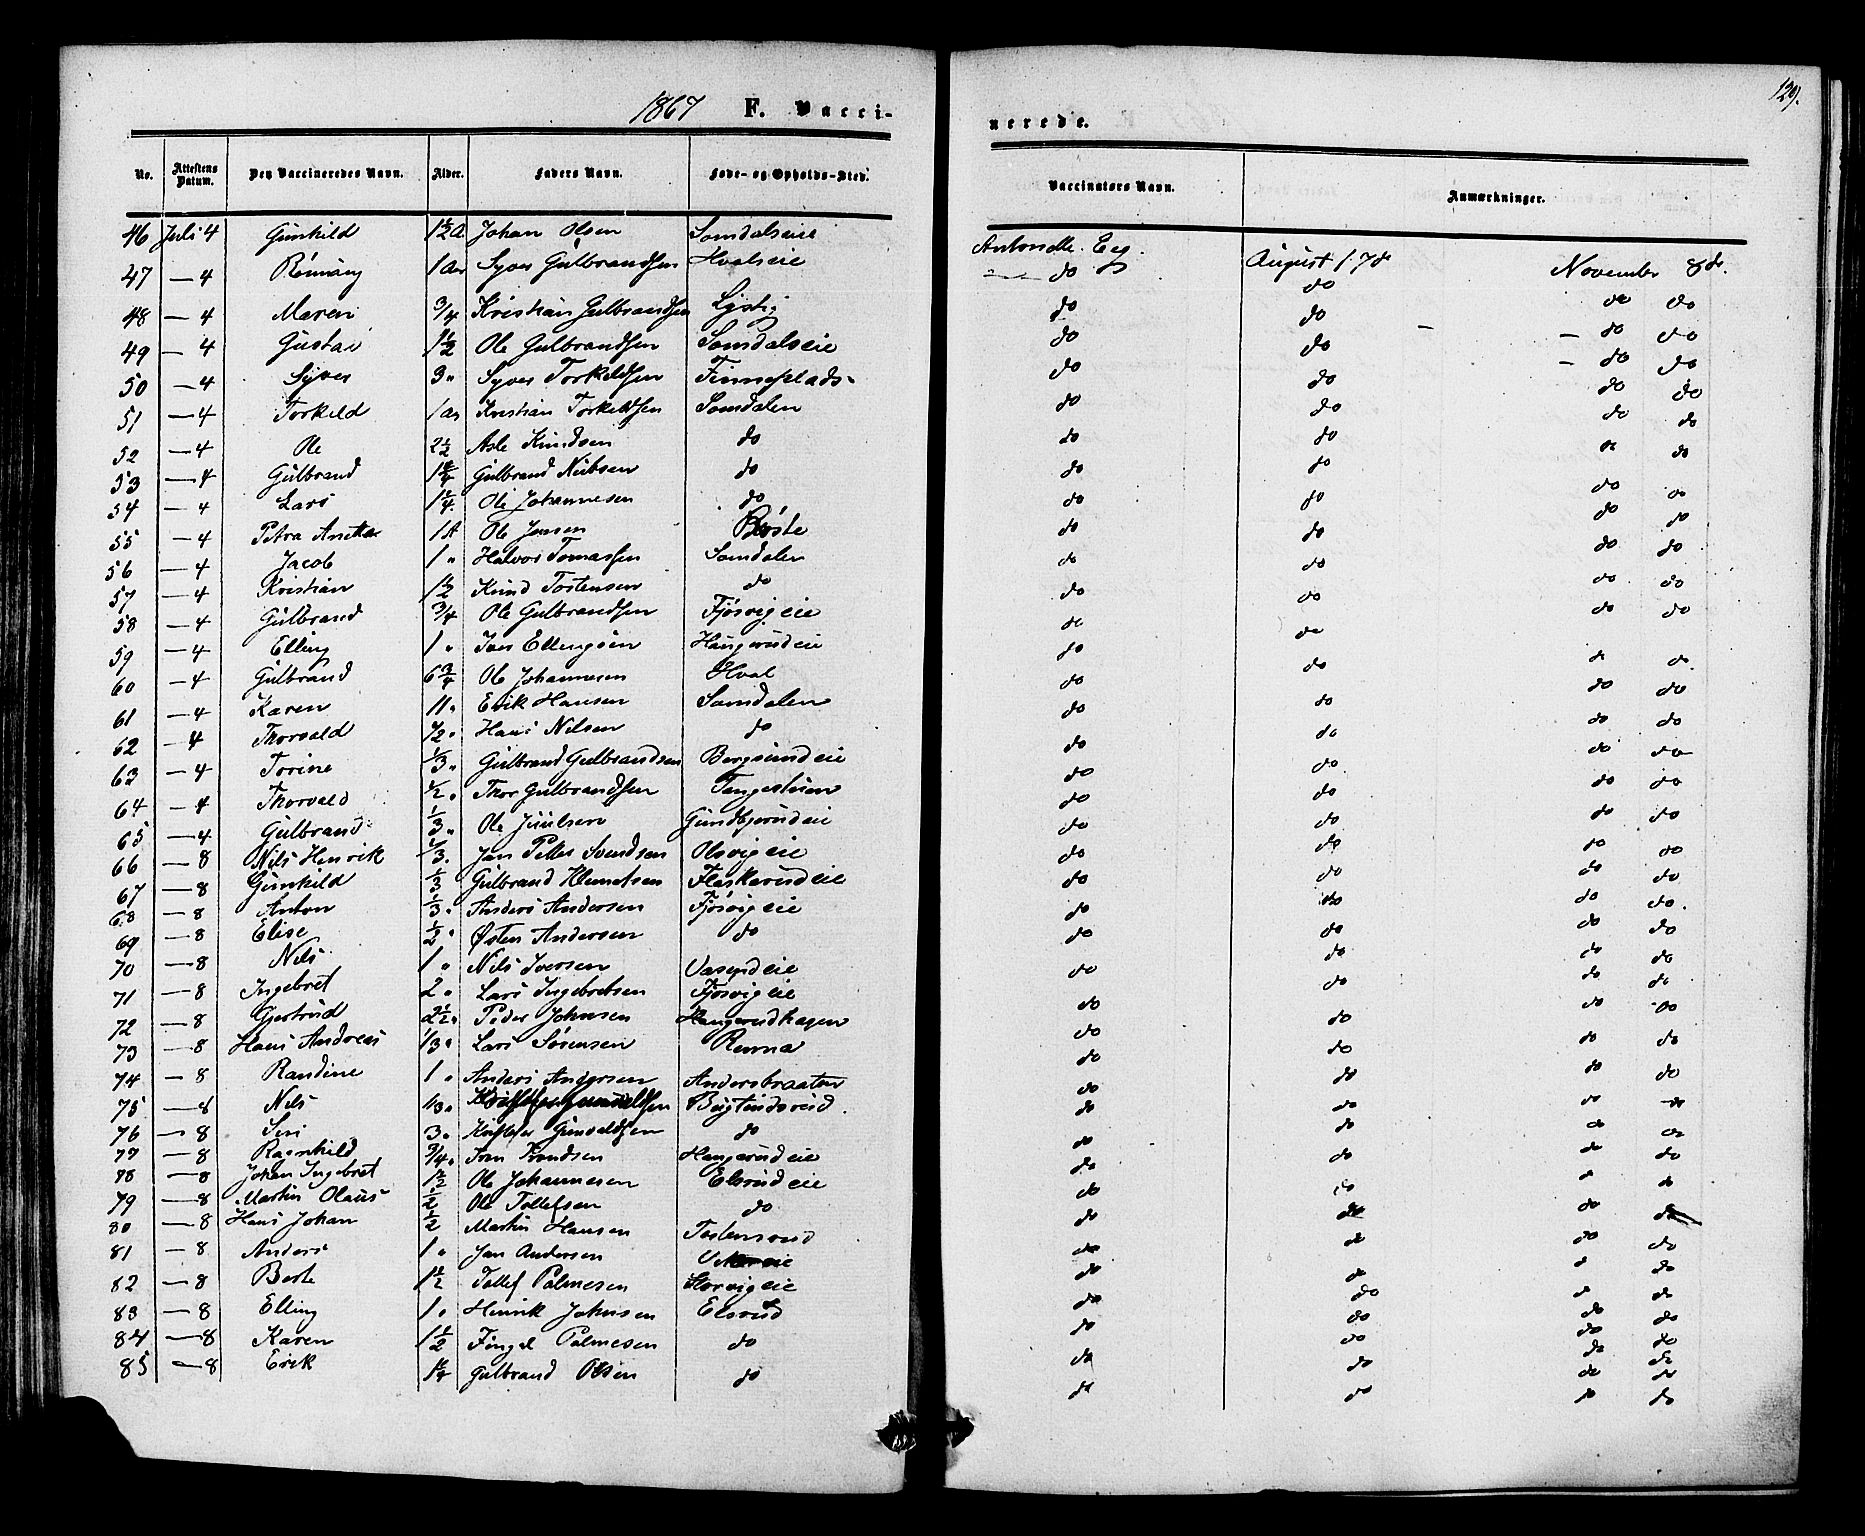 129.
1867 F. Vaccinerede.
No. Attestens Datum. Den Vaccineredes Navn. Alder. Faders Navn. Føde- og Opholds-Sted. Vaccinators Navn. Anmærkninger.
46 Juli 4 Gunhild 1½ A Johan Olsen Somdalseie Eeg August 17de November 8de.
47 — 4 1 Aar Syver Gulbrandsen Hvalseie do do do do
48 — 4 Maren 3/4 Kristian Gulbrandsen do do do do
49 — 4 Gustav 1½ Ole Gulbrandsen Somdalseie do do do do
50 — 4 Syver 3 " Syver Torkildsen Finneplads do do do do
51 — 4 Torkild 1 Aar Kristian Torkildsen Somdalen do do do do
52 — 4 Ole 2½ Asle Knudsen do do do do do
53 — 4 Gulbrand Gulbrand do do do do do
54 — 4 Lars 1¼ Ole Johannesen do do do do do
55 — 4 Petra 1 A Ole Jensen Børste do do do do
56 — 4 Jacob 1 " Halvor Tomassen Somdalen do do do do
57 — 4 Kristian 1½ Knud Tostensen do do do do do
58 — 4 Gulbrand 3/4 Ole Gulbrandsen Fjøsvigeie do do do do
59 — 4 Elling 1 " Iver Ellingsen Haugerudeie do do do do
60 — 4 Gulbrand 6¾ Ole Johannesen Hval do do do do
61 — 4 Karen 11 " Erik Hansen Somdalen do do do do
62 — 4 Thorvald ½ " Hans Nilsen do do do do do
63 — 4 Torine 1/3 " Gulbrand Gulbrandsen Bergsundeie do do do do
64 — 4 Thorvald ½ " Thor Gulbrandsen do do do do
65 — 4 Gulbrand 1/3 " Ole Juulsen Gundbjørudeie do do do do
66 — 8 Nils Henrik 1/3 " Jan Petter Svendsen Olsvigeie do do do do
67 — 8 Gunhild 1/3 Gulbrand Klemetsen Flaskerudeie do do do do
68 — 8 Anton 1/3 " Anders Andersen Fjøsvigeie do do do do
69 — 8 Elise ½ " Østen Andersen do do do do do
70 — 8 Nils 1 " Nils Iversen Vasendeie do do do do
71 — 8 Ingebret 2 " Lars Ingebretsen Fjøsvigeie do do do do
72 — 8 Gjertrud 2½ " Peder Johnsen Haugerudhagen do do do do
73 — 8 Hans Andreas 1/3 " Lars Sørensen do do do do
74 — 8 Randine 1 " Anders Andersen Andersbraaten do do do do
75 — 8 Nils 1/3 " do do do do
76 — 8 Siri 3 " Kristofer Gunvaldsen do do do do do
77 — 8 Ragnhild 3/4 " Iver Haugerudeie do do do do
78 — 8 Johan Ingebret 1½ Ole Johannesen Elsrudeie do do do do
79 — 8 Martin Olaus ½ Ole Tollefsen do do do do do
80 — 8 Hans Johan ½ Martin Hansen Tostensrud do do do do
81 — 8 Anders 1 " Jan Andersen do do do do
82 — 8 Berte 1½ Tollef Palmesen Storvigeie do do do do
83 — 8 Elling 1 " Henrik Johnsen Elsrud do do do do
84 — 8 Karen 1½ Fingal Palmesen do do do do do
85 — 8 Erik 1¼ Gulbrand Olsen do do do do do